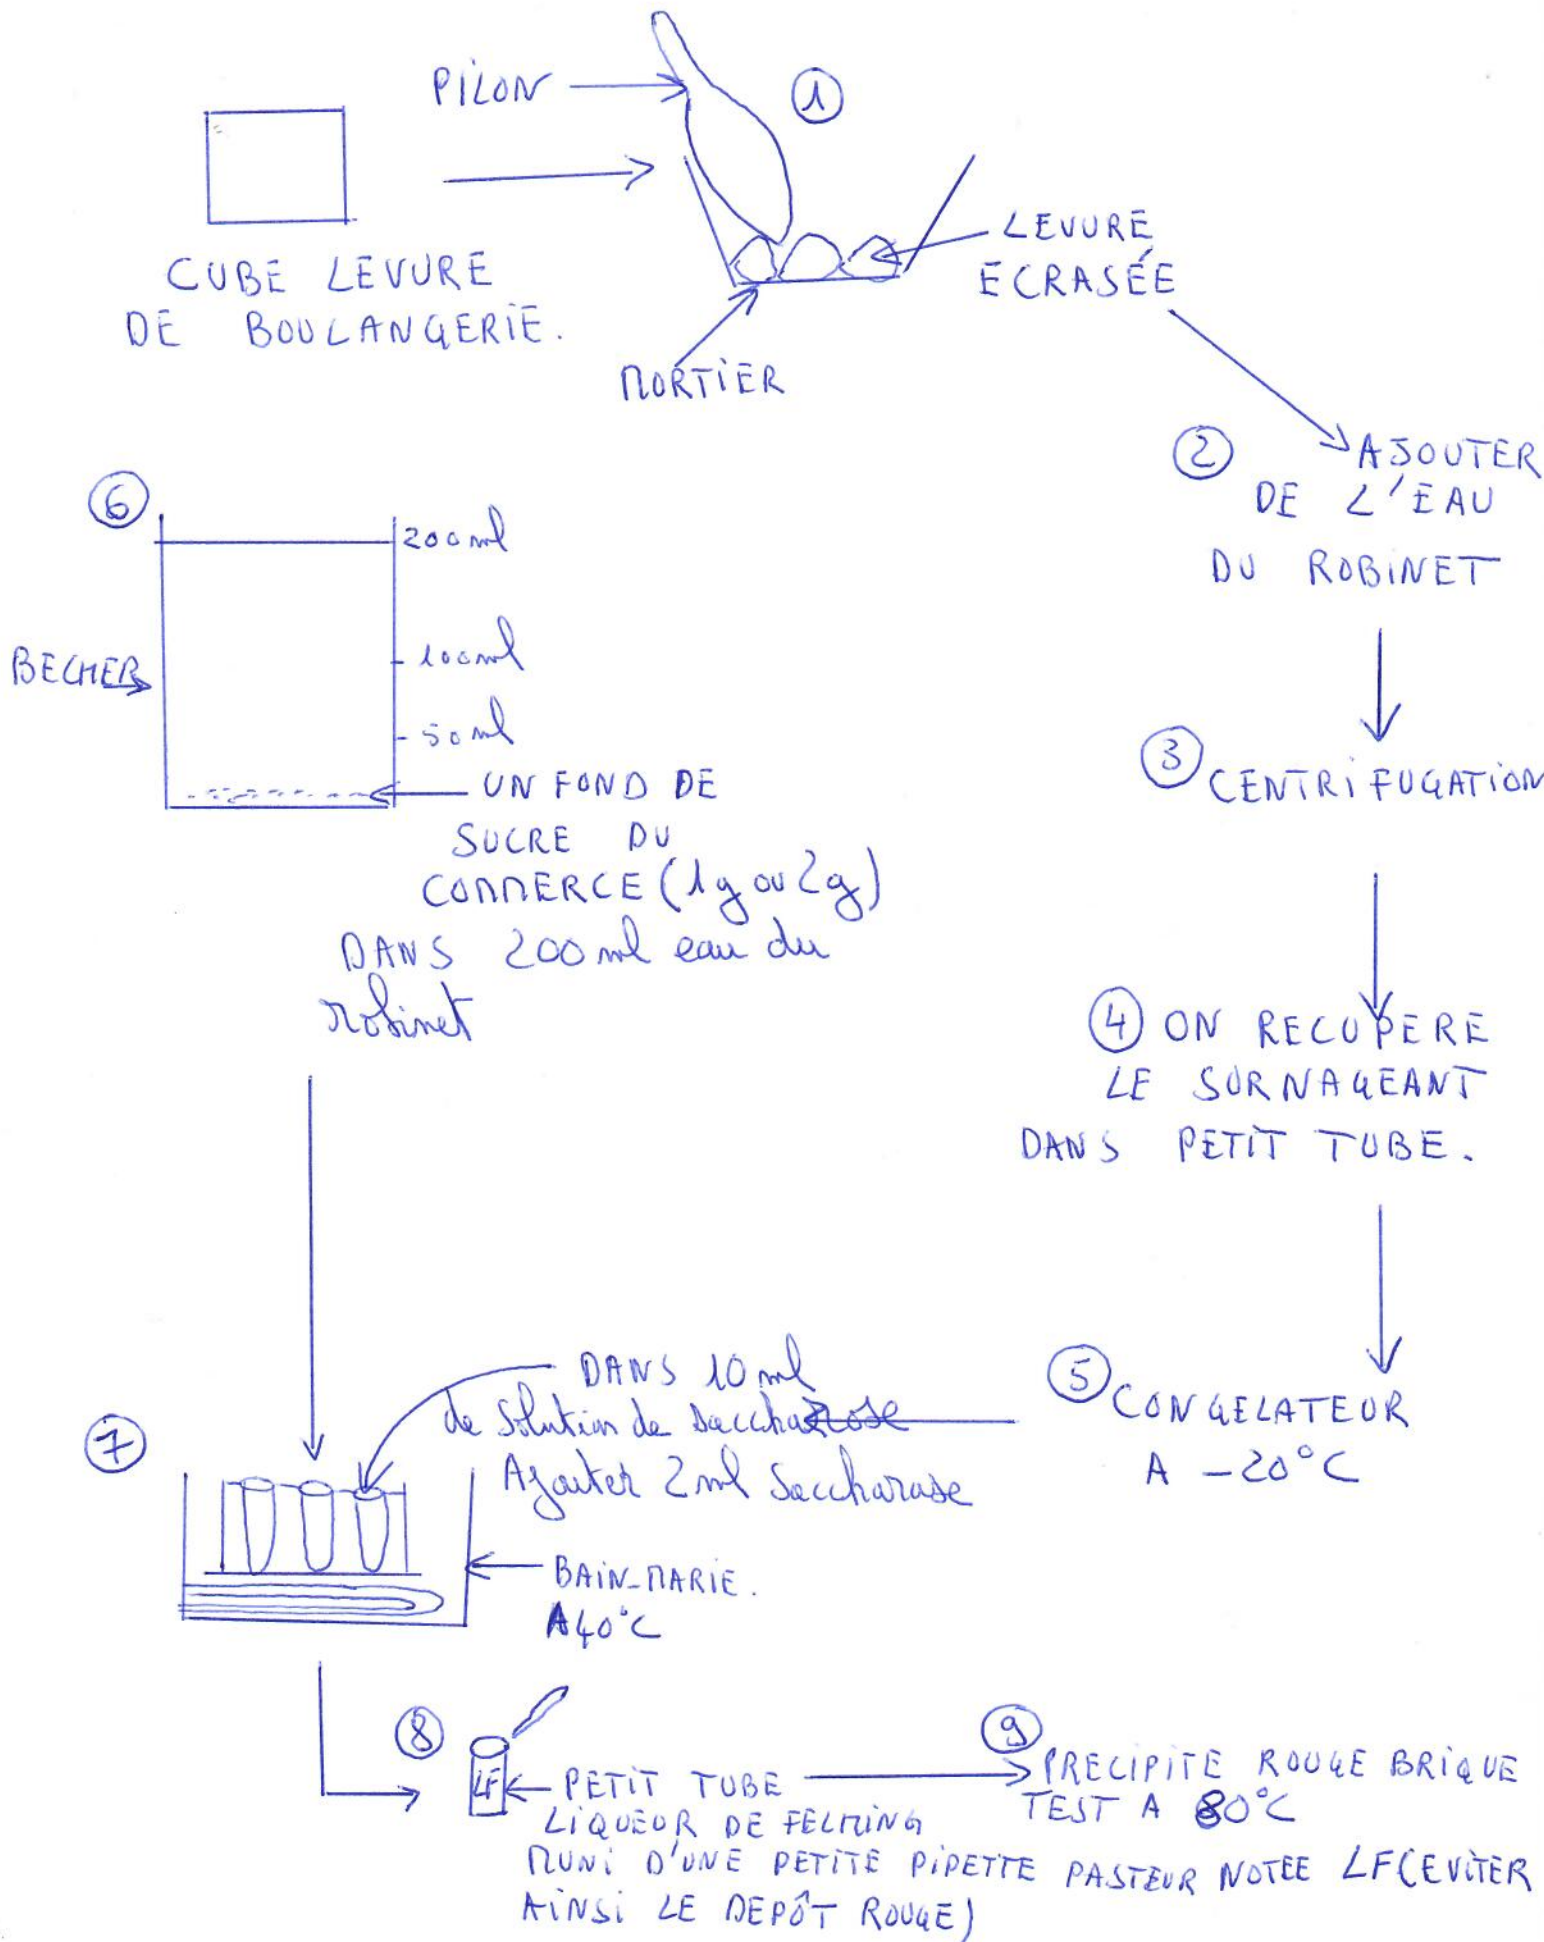 PILON
1
CUBE LEVURE
DE BOULANGERIE.
LEVURE
ECRASÉE
MORTIER
2
AJOUTER
DE L'EAU
DU ROBINET
3
CENTRIFUGATION
4
ON RECUPERE
LE SURNAGEANT
DANS PETIT TUBE.
5
CONGELATEUR
A -20°C
6
200 ml
100 ml
50 ml
BECHER
UN FOND DE
SUCRE DU
COMMERCE (1g ou 2g)
DANS 200 ml eau du
robinet
7
DANS 10 ml
de solution de saccharose
Ajouter 2 ml Saccharase
BAIN-MARIE.
A 40°C
8
LF
PETIT TUBE
LIQUEUR DE FELHING
MUNI D'UNE PETITE PIPETTE PASTEUR NOTEE LF (EVITER
AINSI LE DEPÔT ROUGE)
9
PRECIPITE ROUGE BRIQUE
TEST A 80°C